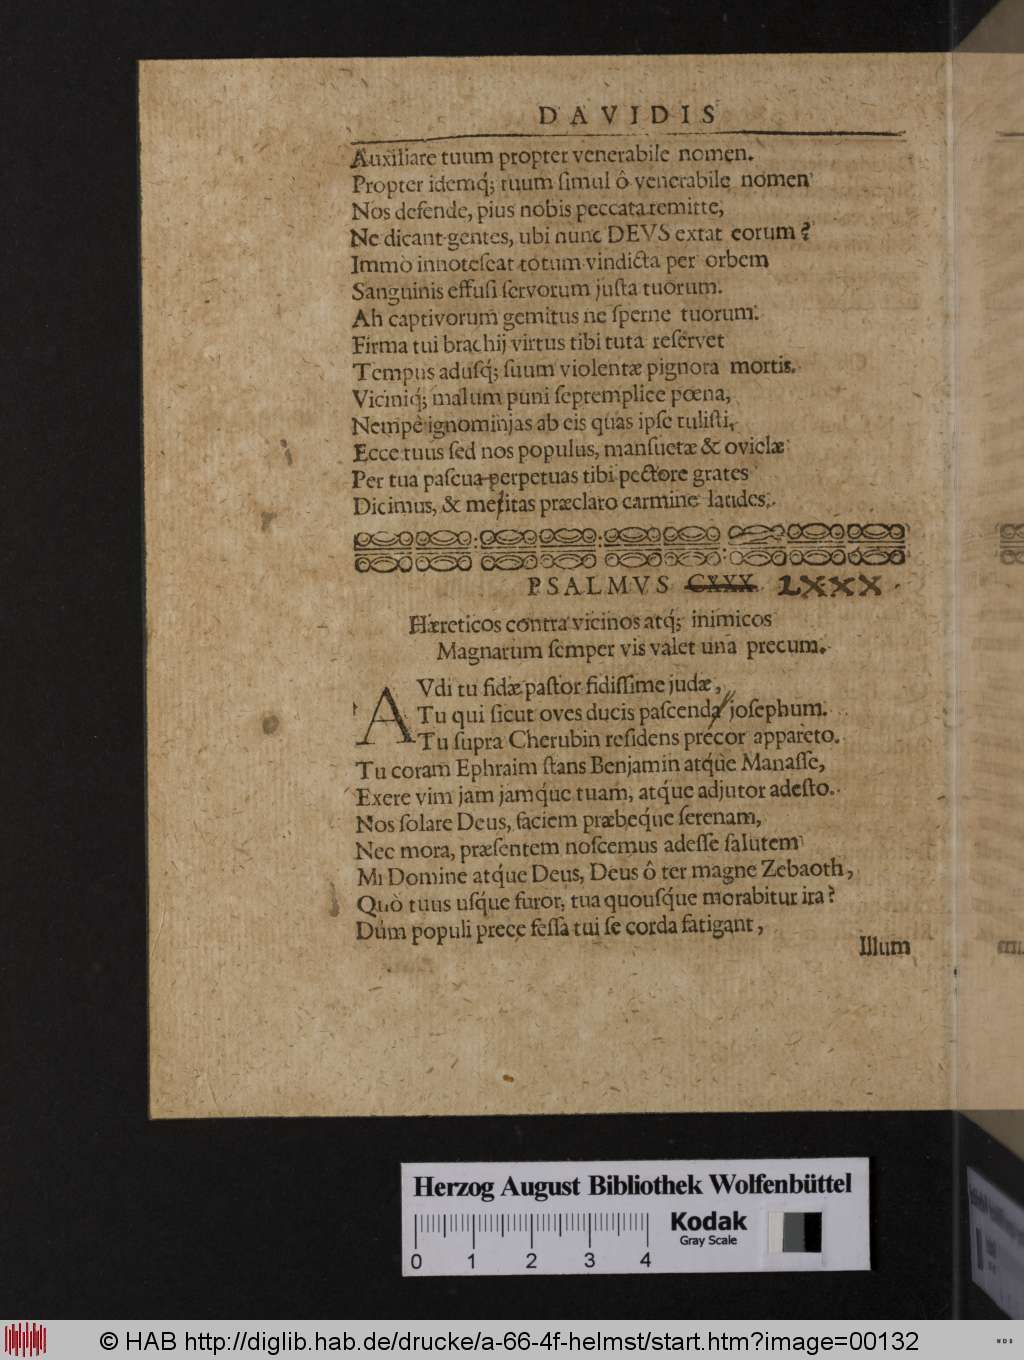 DAVIDIS
Auxiliare tuum propter venerabile nomen.
Propter idemq́; tuum ſimul ô venerabile nomen
Nos defende, pius nobis peccata remitte,
Ne dicant gentes, ubi nunc DEVS extat eorum?
Immò innoteſcat totum vindicta per orbem
Sanguinis effuſi ſervorum juſta tuorum.
Ah captivorum gemitus ne ſperne tuorum.
Firma tui brachij virtus tibi tuta reſervet
Tempus aduſq́; ſuum violentæ pignora mortis.
Viciniq́; malum puni ſeptemplice pœna,
Nempè ignominjas ab eis quas ipſe tuliſti,
Ecce tuus ſed nos populus, manſuetæ & oviclæ
Per tua paſcua perpetuas tibi pectore grates
Dicimus, & meritas præclaro carmine laudes.
PSALMVS CXXX. LXXX.
Hæreticos contra vicinos atq́; inimicos
Magnarum ſemper vis valet una precum.
AVdi tu fidæ paſtor fidiſſime judæ,
Tu qui ſicut oves ducis paſcenda joſephum.
Tu ſupra Cherubin reſidens precor appareto.
Tu coram Ephraim ſtans Benjamin atq́ue Manaſſe,
Exere vim jam jamq́ue tuam, atq́ue adjutor adeſto.
Nos ſolare Deus, faciem præbeq́ue ſerenam,
Nec mora, præſentem noſcemus adeſſe ſalutem
Mi Domine atq́ue Deus, Deus ô ter magne Zebaoth,
Quò tuus uſq́ue furor, tua quouſq́ue morabitur ira?
Dùm populi prece feſſa tui ſe corda fatigant,
Illum
Herzog August Bibliothek Wolfenbüttel
Kodak
Gray Scale
0 1 2 3 4
© HAB http://diglib.hab.de/drucke/a-66-4f-helmst/start.htm?image=00132